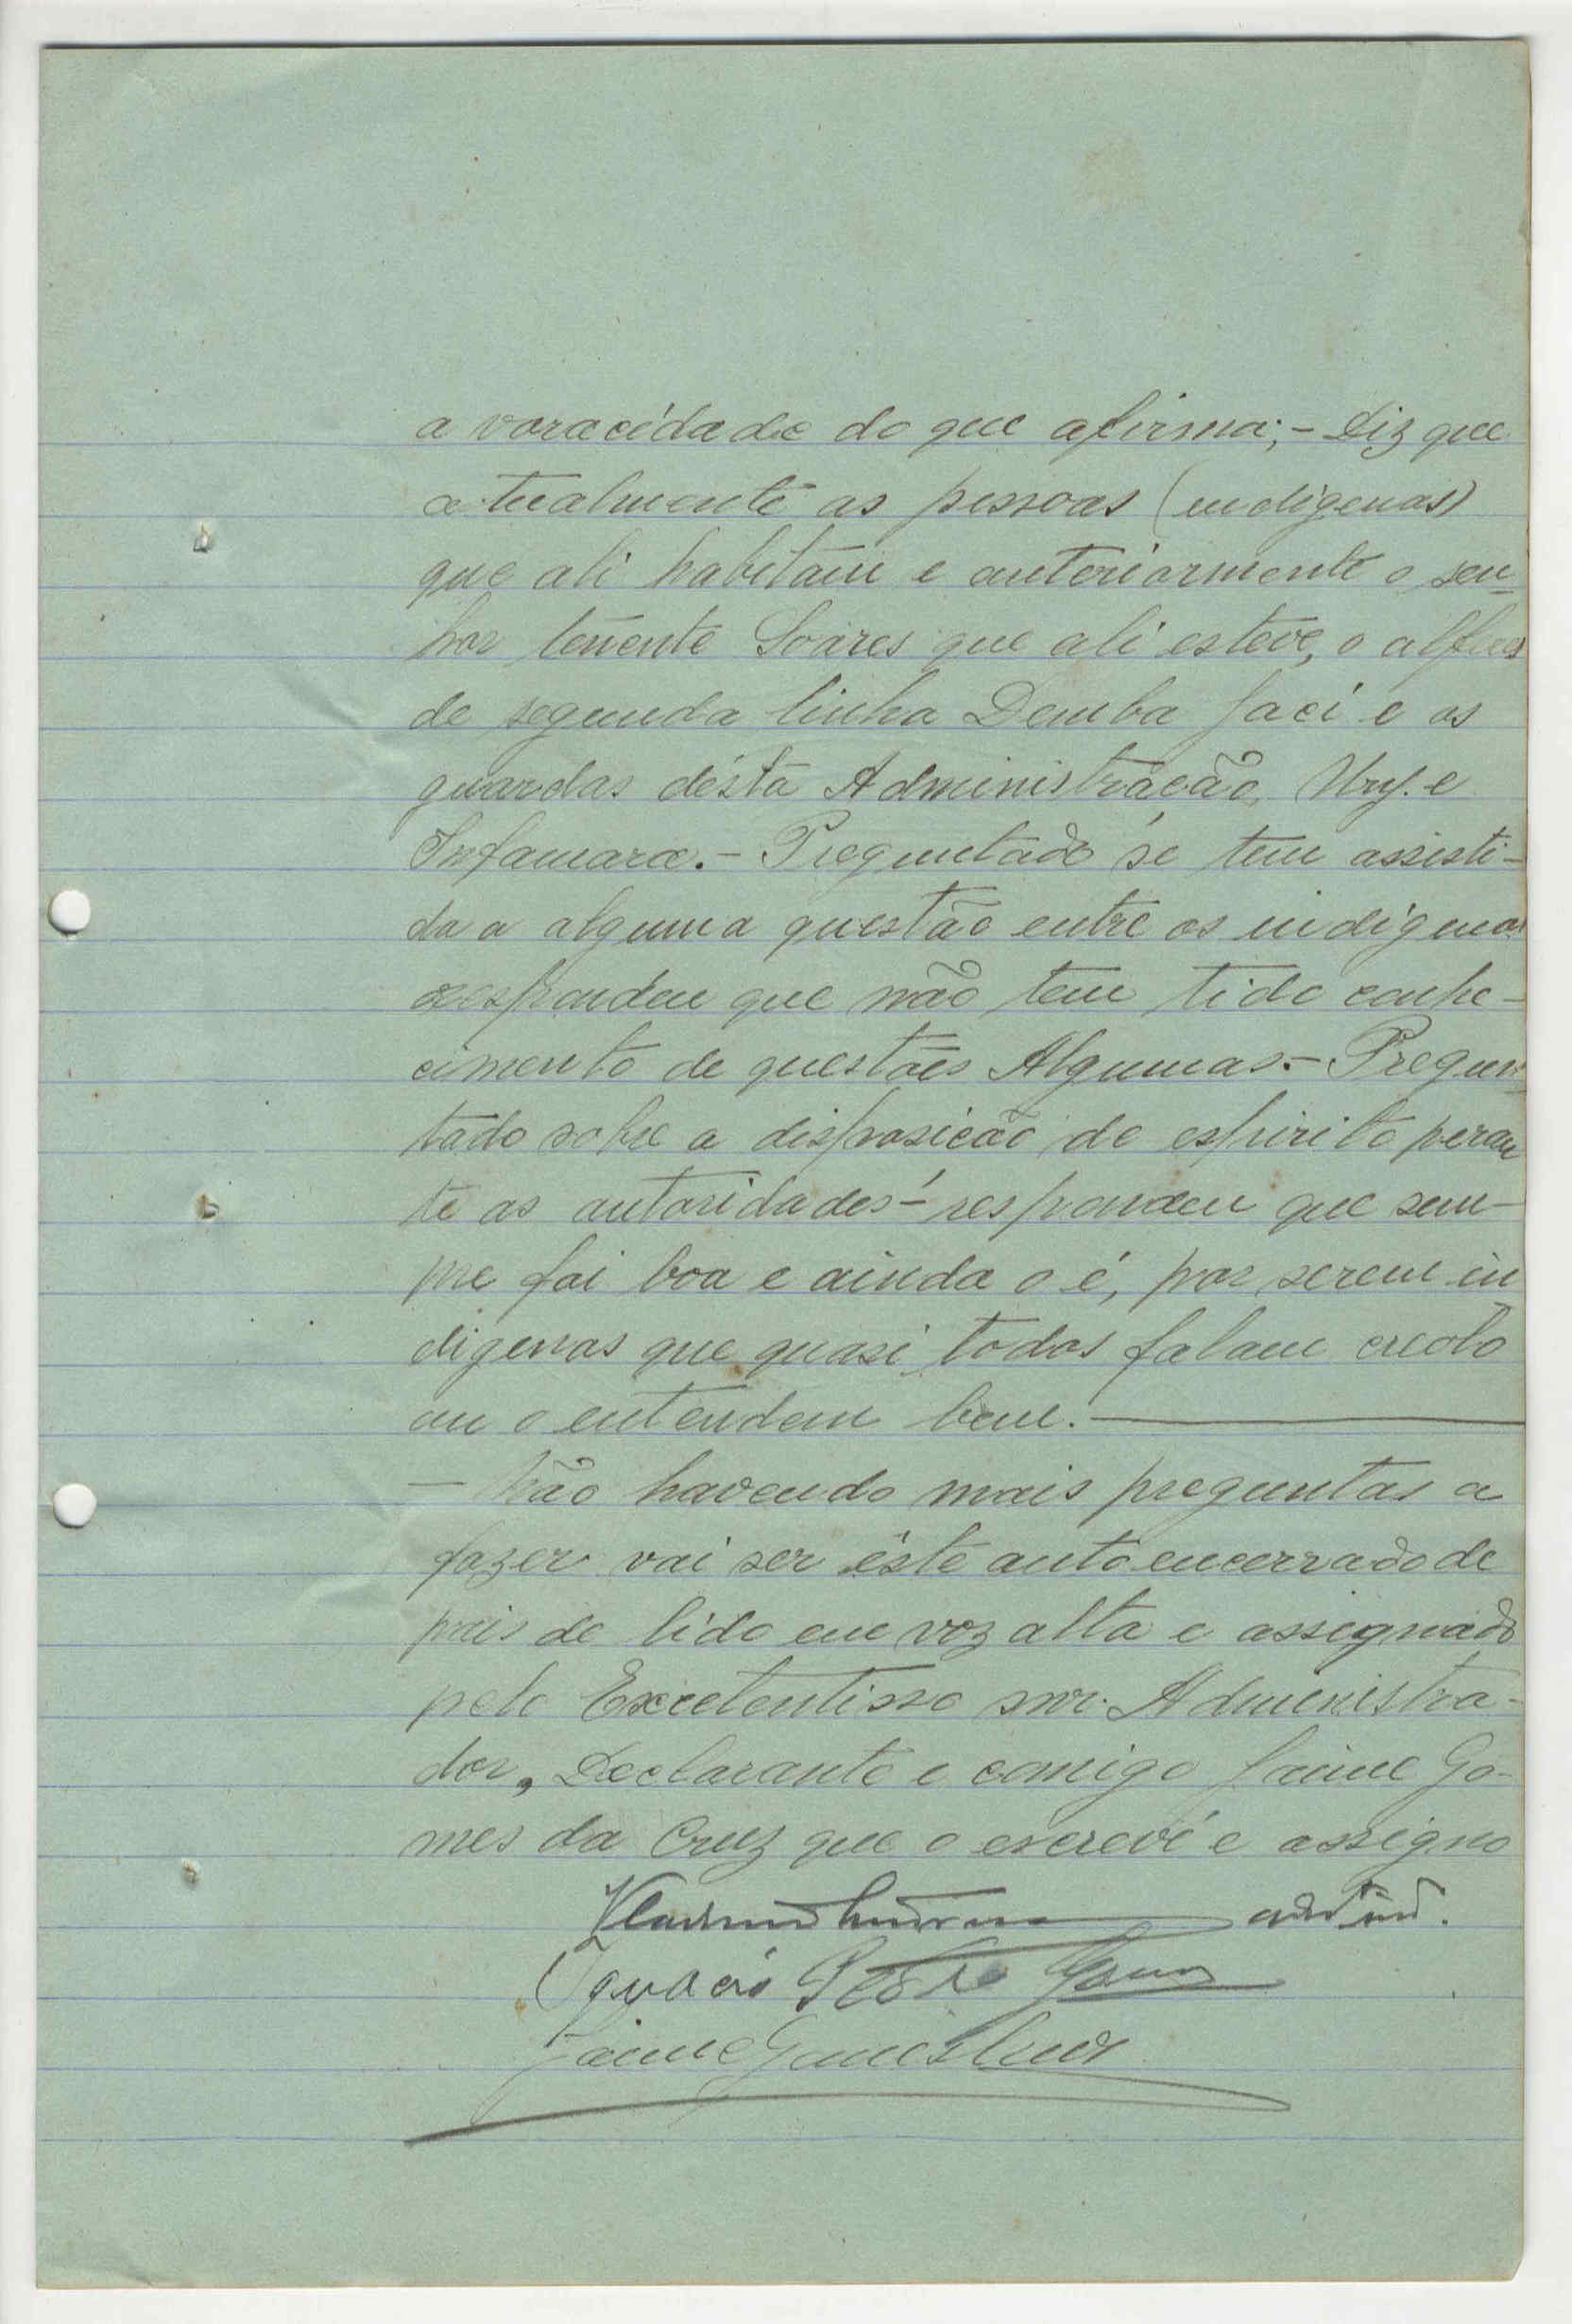 a voracidade do que afirma; - Diz que
atualmente as pessoas (indigenas)
que ali habitam e anteriormente o sen-
hor tenente Soares que ali esteve, o alferes
de segunda linha Demba Jaci e os
guardas désta Administração, e
Infamara. - Preguntado se tem assisti-
da a alguma questão entre os indigenas
respondeu que não tem tido conhe-
cimento de questões Algumas. - Pregun-
tado sobre a disposição de espirito peran
te as autoridades - respondeu que sem-
pre foi boa e ainda o é, por serem in
digenas que quasi todos falam creolo
ou o entendem bem. —
— Não havendo mais preguntas a
fazer vai ser éste auto encerrado de
pois de lido em voz alta e assignado
pelo Excelentisso snr. Administra-
dor, Declarante e comigo Jaime Go-
mes da Cruz que o escreví e assigno
Ignacio Gomes
Jaime Gomes Cruz